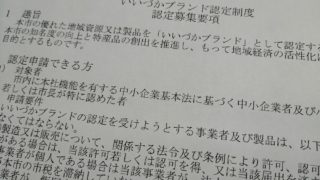 いいづかブランド認定制度
認定募集要項
1 趣旨
本市の優れた地域資源又は製品を「いいづかブランド」として認定する
本市の知名度の向上と特産品の創出を推進し、もって地域経済の活性化に
目的とするものです。
認定申請できる方
対象者
市内に本社機能を有する中小企業基本法に基づく中小企業者及び
若しくは市長が特に認めた者
申請要件
づかブランドの認定を受けようとする事業者及び製品は、以下
なくてはならない。
製造又は販売について、関係する法令及び条例により許可、認可
事業者が個人である場合は当該許可若しくは認可を得、又は当該届出を
本市の市税を滞納し